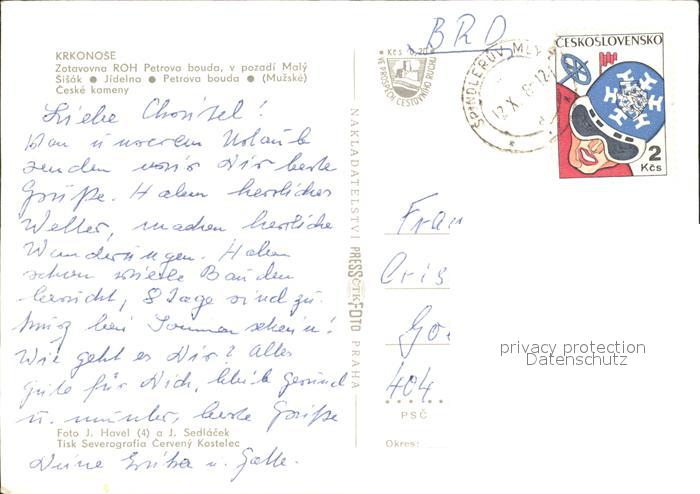 BRD
KRKONOŠE
Zotavovna ROH Petrova bouda, v pozadí Malý
Šišák ● Jídelna ● Petrova bouda ● (Mužské)
České kameny
Kčs 0,20
VE PROSPĚCH CESTOVNÍHO RUCHU
ŠPINDLERŮV MLÝN
12.X.
ČESKOSLOVENSKO
2
Kčs
Liebe Christel!
Von unserem Urlaub
senden wir Dir beste
Grüße. Haben herrliches
Wetter, machen herrliche
Wanderungen. Haben
schon viele Bauden
besucht, 8 Tage sind zu
kurz bei Sonnenschein!
Wie geht es Dir? Alles
gute für Dich, bleib gesund
u. munter, beste Grüße
Deine Erika u.
NAKLADATELSTVÍ PRESSFOTO PRAHA
ČTK
Frau
Cris
Go
404
PSČ
Okres:
privacy protection
Datenschutz
Foto J. Havel (4) a J. Sedláček
Tisk Severografia Červený Kostelec